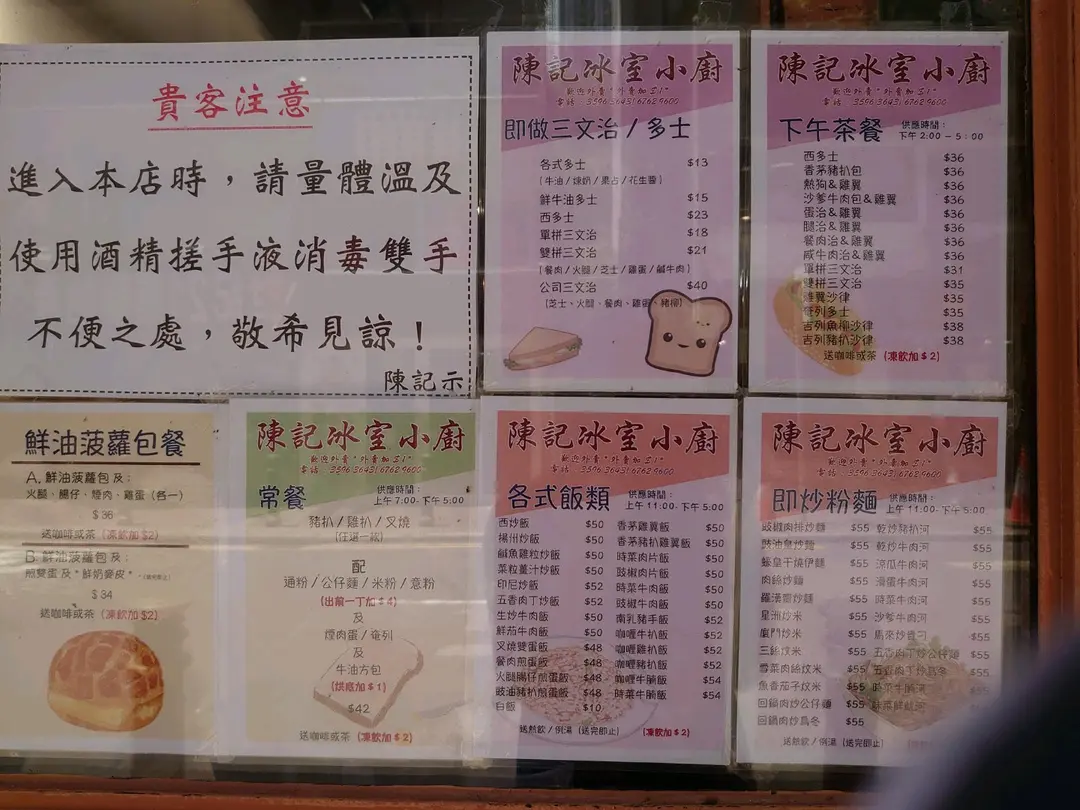 貴客注意
進入本店時，請量體溫及
使用酒精搓手液消毒雙手
不便之處，敬希見諒！
陳記示
陳記冰室小廚
歡迎外賣*外賣加$1*
電話 3596 3643/6762 9600
即做三文治/多士
各式多士 $13
(牛油/煉奶/果占/花生醬)
鮮牛油多士 $15
西多士 $23
單拼三文治 $18
雙拼三文治 $21
(餐肉/火腿/芝士/雞蛋/鹹牛肉)
公司三文治 $40
(芝士、火腿、餐肉、雞蛋、豬柳)
陳記冰室小廚
歡迎外賣*外賣加$1*
電話 3596 3643/6762 9600
下午茶餐
供應時間：
下午 2:00 – 5：00
西多士 $36
香茅豬扒包 $36
熱狗&雞翼 $36
沙爹牛肉包&雞翼 $36
蛋治&雞翼 $36
腿治&雞翼 $36
餐肉治&雞翼 $36
咸牛肉治&雞翼 $36
單拼三文治 $31
雙拼三文治 $35
雞翼沙律 $35
奄列多士 $35
吉列魚柳沙律 $38
吉列豬扒沙律 $38
送咖啡或茶 (凍飲加$2)
鮮油菠蘿包餐
A. 鮮油菠蘿包及：
火腿、腸仔、煙肉、雞蛋 (各一)
$36
送咖啡或茶 (凍飲加$2)
B. 鮮油菠蘿包及：
煎雙蛋 及 *鮮奶麥皮*
$34
送咖啡或茶 (凍飲加$2)
陳記冰室小廚
歡迎外賣*外賣加$1*
電話 3596 3643/6762 9600
常餐
供應時間：
上午 7:00- 下午 5:00
豬扒/雞扒/叉燒
(任選一款)
配
通粉/公仔麵/米粉/意粉
(出前一丁加$4)
及
煙肉蛋/奄列
及
牛油方包
(烘底加$1)
$42
送咖啡或茶 (凍飲加$2)
陳記冰室小廚
歡迎外賣*外賣加$1*
電話 3596 3643/6762 9600
各式飯類
供應時間：
上午 11:00- 下午 5:00
西炒飯 $50 香茅雞翼飯 $50
揚州炒飯 $50 香茅豬扒雞翼飯 $50
鹹魚雞粒炒飯 $50 時菜肉片飯 $50
菜粒薑汁炒飯 $50 豉椒肉片飯 $50
印尼炒飯 $52 時菜牛肉飯 $50
五香肉丁炒飯 $52 豉椒牛肉飯 $50
生炒牛肉飯 $50 南乳豬手飯 $52
鮮茄牛肉飯 $50 咖喱牛扒飯 $52
叉燒雙蛋飯 $48 咖喱雞扒飯 $52
餐肉煎蛋飯 $48 咖喱豬扒飯 $52
火腿腸仔煎蛋飯 $48 咖喱牛腩飯 $54
豉油豬扒煎蛋飯 $48 時菜牛腩飯 $54
白飯 $10
送熱飲/例湯 (送完即止) (凍飲加$2)
陳記冰室小廚
歡迎外賣*外賣加$1*
電話 3596 3643/6762 9600
即炒粉麵
供應時間：
上午 11:00- 下午 5:00
豉椒肉排炒麵 $55 乾炒豬扒河 $55
豉油皇炒麵 $55 乾炒牛肉河 $55
蠔皇干燒伊麵 $55 涼瓜牛肉河 $55
肉絲炒麵 $55 滑蛋牛肉河 $55
羅漢齋炒麵 $55 時菜牛肉河 $55
星洲炒米 $55 沙爹牛肉河 $55
廈門炒米 $55 馬來炒貴刁 $55
三絲炆米 $55 五香肉丁炒公仔麵 $55
雪菜肉絲炆米 $55 五香肉丁炒烏冬 $55
魚香茄子炆米 $55 牛腩河 $55
回鍋肉炒公仔麵 $55 鮮魷河 $55
回鍋肉炒烏冬 $55
送熱飲/例湯 (送完即止)